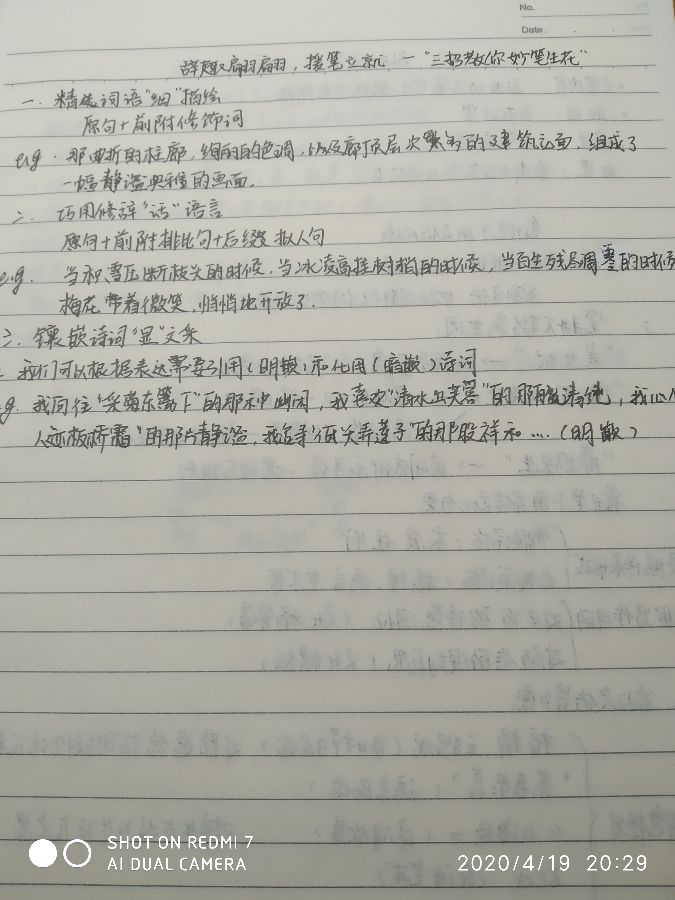 No.
Date.
辞趣翩翩，援笔立就 — "三招教你妙笔生花"
一. 精选词语"细"描绘
原句+前附修饰词
e.g. 那曲折的柱廊，绚丽的色调，以及廊顶层次繁多的建筑立面，组成了
一幅静谧典雅的画面。
二. 巧用修辞"话"语言
原句+前附排比句+后缀拟人句
e.g. 当积雪压断枝头的时候，当冰凌高挂树梢的时候，当百生残尽凋零的时候
梅花带着微笑，悄悄地开放了.
三. 镶嵌诗词"显"文采
我们可以根据表达需要引用(明嵌)和化用(暗嵌)诗词
g. 我向往"采菊东篱下"的那种幽闲，我喜欢"清水出芙蓉"的那般清纯，我
人迹板桥霜"的那片静谧，我追寻"低头弄莲子"的那股祥和 …. (明嵌)
SHOT ON REDMI 7
AI DUAL CAMERA
2020/4/19 20:29